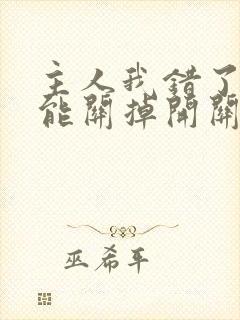 主人我错了
能關掉開關
巫希平